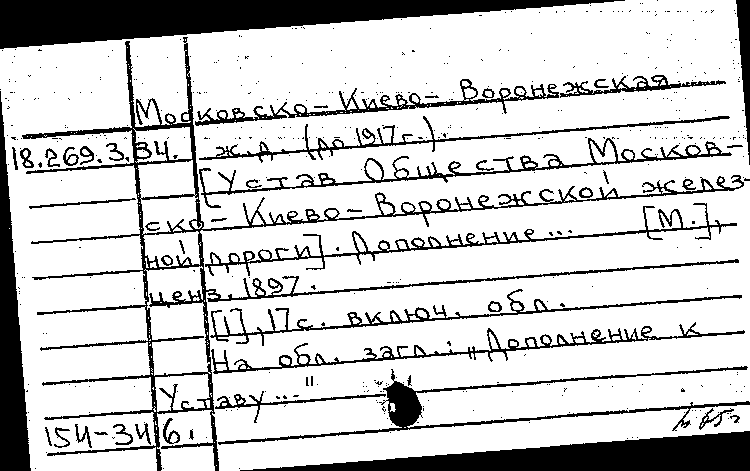 Московско-Киево-Воронежская
18.269.3.34. ж.д. (до 1917г.).
[Устав Общества Москов-
ско-Киево-Воронежской желез-
ной дороги]. Дополнение... [М.],
ценз. 1897.
[1], 17с. включ. обл.
На обл. загл.: „Дополнение к
Уставу..."
154-346.